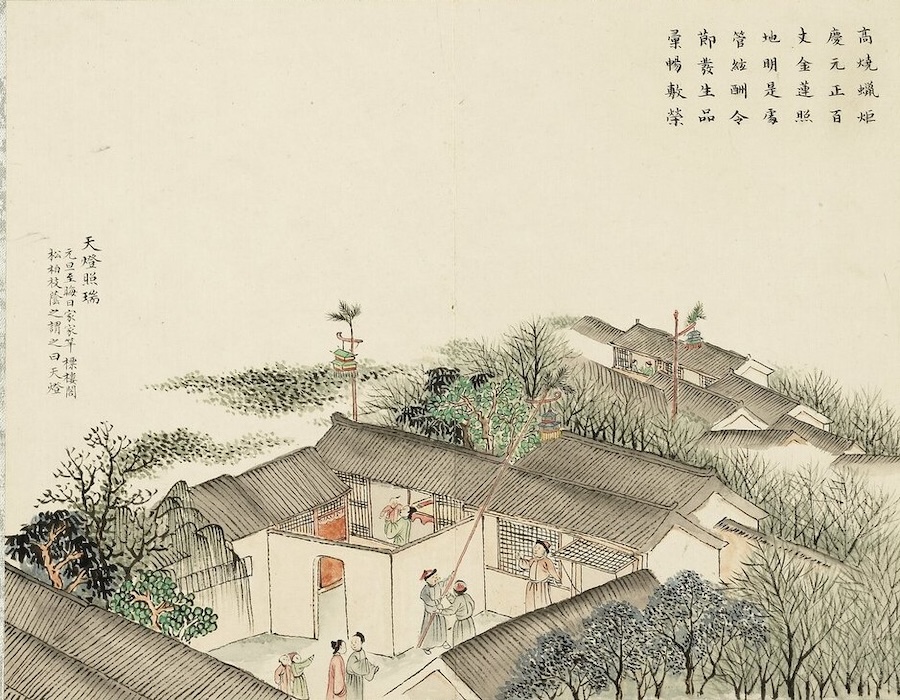 高燒蠟炬
慶元正百
丈金蓮照
地明是處
管絃酬令
節叢生品
彙暢敷榮
天燈照瑞
元旦至晦日家家竿標樓閣
松柏枝蔭之謂之曰天燈